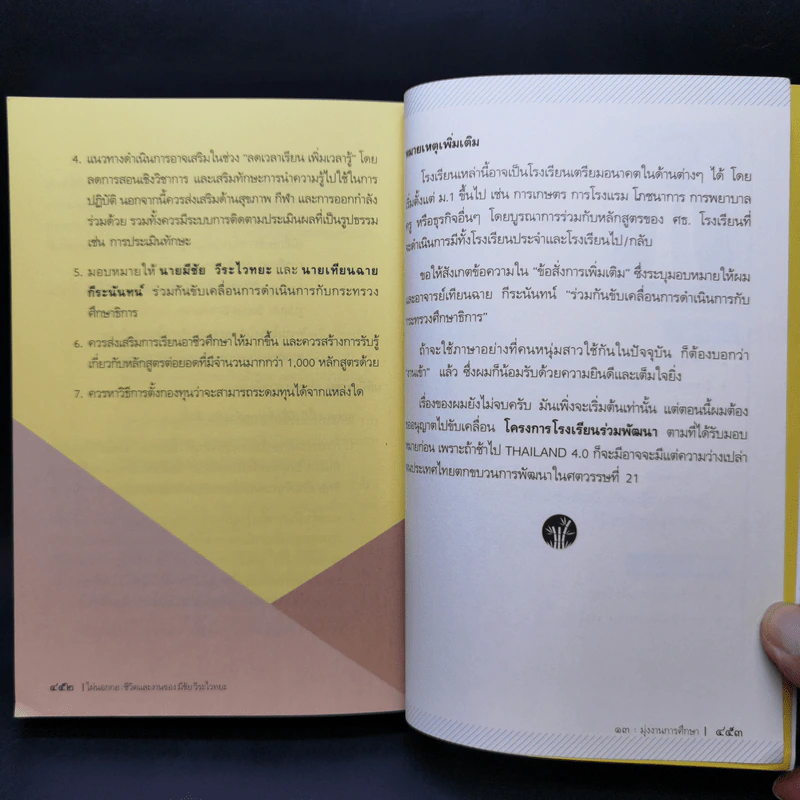 4. แนวทางดำเนินการอาจเสริมในช่วง "ลดเวลาเรียน เพิ่มเวลารู้" โดย
ลดการสอนเชิงวิชาการ และเสริมทักษะการนำความรู้ไปใช้ในการ
ปฏิบัติ นอกจากนี้ควรส่งเสริมด้านสุขภาพ กีฬา และการออกกำลัง
ร่วมด้วย รวมทั้งควรมีระบบการติดตามประเมินผลที่เป็นรูปธรรม
เช่น การประเมินทักษะ
5. มอบหมายให้ นายมีชัย วีระไวทยะ และ นายเทียนฉาย
กีระนันทน์ ร่วมกันขับเคลื่อนการดำเนินการกับกระทรวง
ศึกษาธิการ
6. ควรส่งเสริมการเรียนอาชีวศึกษาให้มากขึ้น และควรสร้างการรับรู้
เกี่ยวกับหลักสูตรต่อยอดที่มีจำนวนมากกว่า 1,000 หลักสูตรด้วย
7. ควรหาวิธีการตั้งกองทุนว่าจะสามารถระดมทุนได้จากแหล่งใด
๔๕๒ | ไผ่นอกกอ : ชีวิตและงานของ มีชัย วีระไวทยะ
หมายเหตุเพิ่มเติม
โรงเรียนเหล่านี้อาจเป็นโรงเรียนเตรียมอนาคตในด้านต่างๆ ได้ โดย
เริ่มตั้งแต่ ม.1 ขึ้นไป เช่น การเกษตร การโรงแรม โภชนาการ การพยาบาล
ครู หรือธุรกิจอื่นๆ โดยบูรณาการร่วมกับหลักสูตรของ ศธ. โรงเรียนที่
จะดำเนินการมีทั้งโรงเรียนประจำและโรงเรียนไป/กลับ
ขอให้สังเกตข้อความใน "ข้อสั่งการเพิ่มเติม" ซึ่งระบุมอบหมายให้ผม
และอาจารย์เทียนฉาย กีระนันทน์ "ร่วมกันขับเคลื่อนการดำเนินการกับ
กระทรวงศึกษาธิการ"
ถ้าจะใช้ภาษาอย่างที่คนหนุ่มสาวใช้กันในปัจจุบัน ก็ต้องบอกว่า
"งานเข้า" แล้ว ซึ่งผมก็น้อมรับด้วยความยินดีและเต็มใจยิ่ง
เรื่องของผมยังไม่จบครับ มันเพิ่งจะเริ่มต้นเท่านั้น แต่ตอนนี้ผมต้อง
ขออนุญาตไปขับเคลื่อน โครงการโรงเรียนร่วมพัฒนา ตามที่ได้รับมอบ
หมายก่อน เพราะถ้าช้าไป THAILAND 4.0 ก็จะมีอาจจะมีแต่ความว่างเปล่า
จนประเทศไทยตกขบวนการพัฒนาในศตวรรษที่ 21
๑๓ : มุ่งงานการศึกษา | ๔๕๓